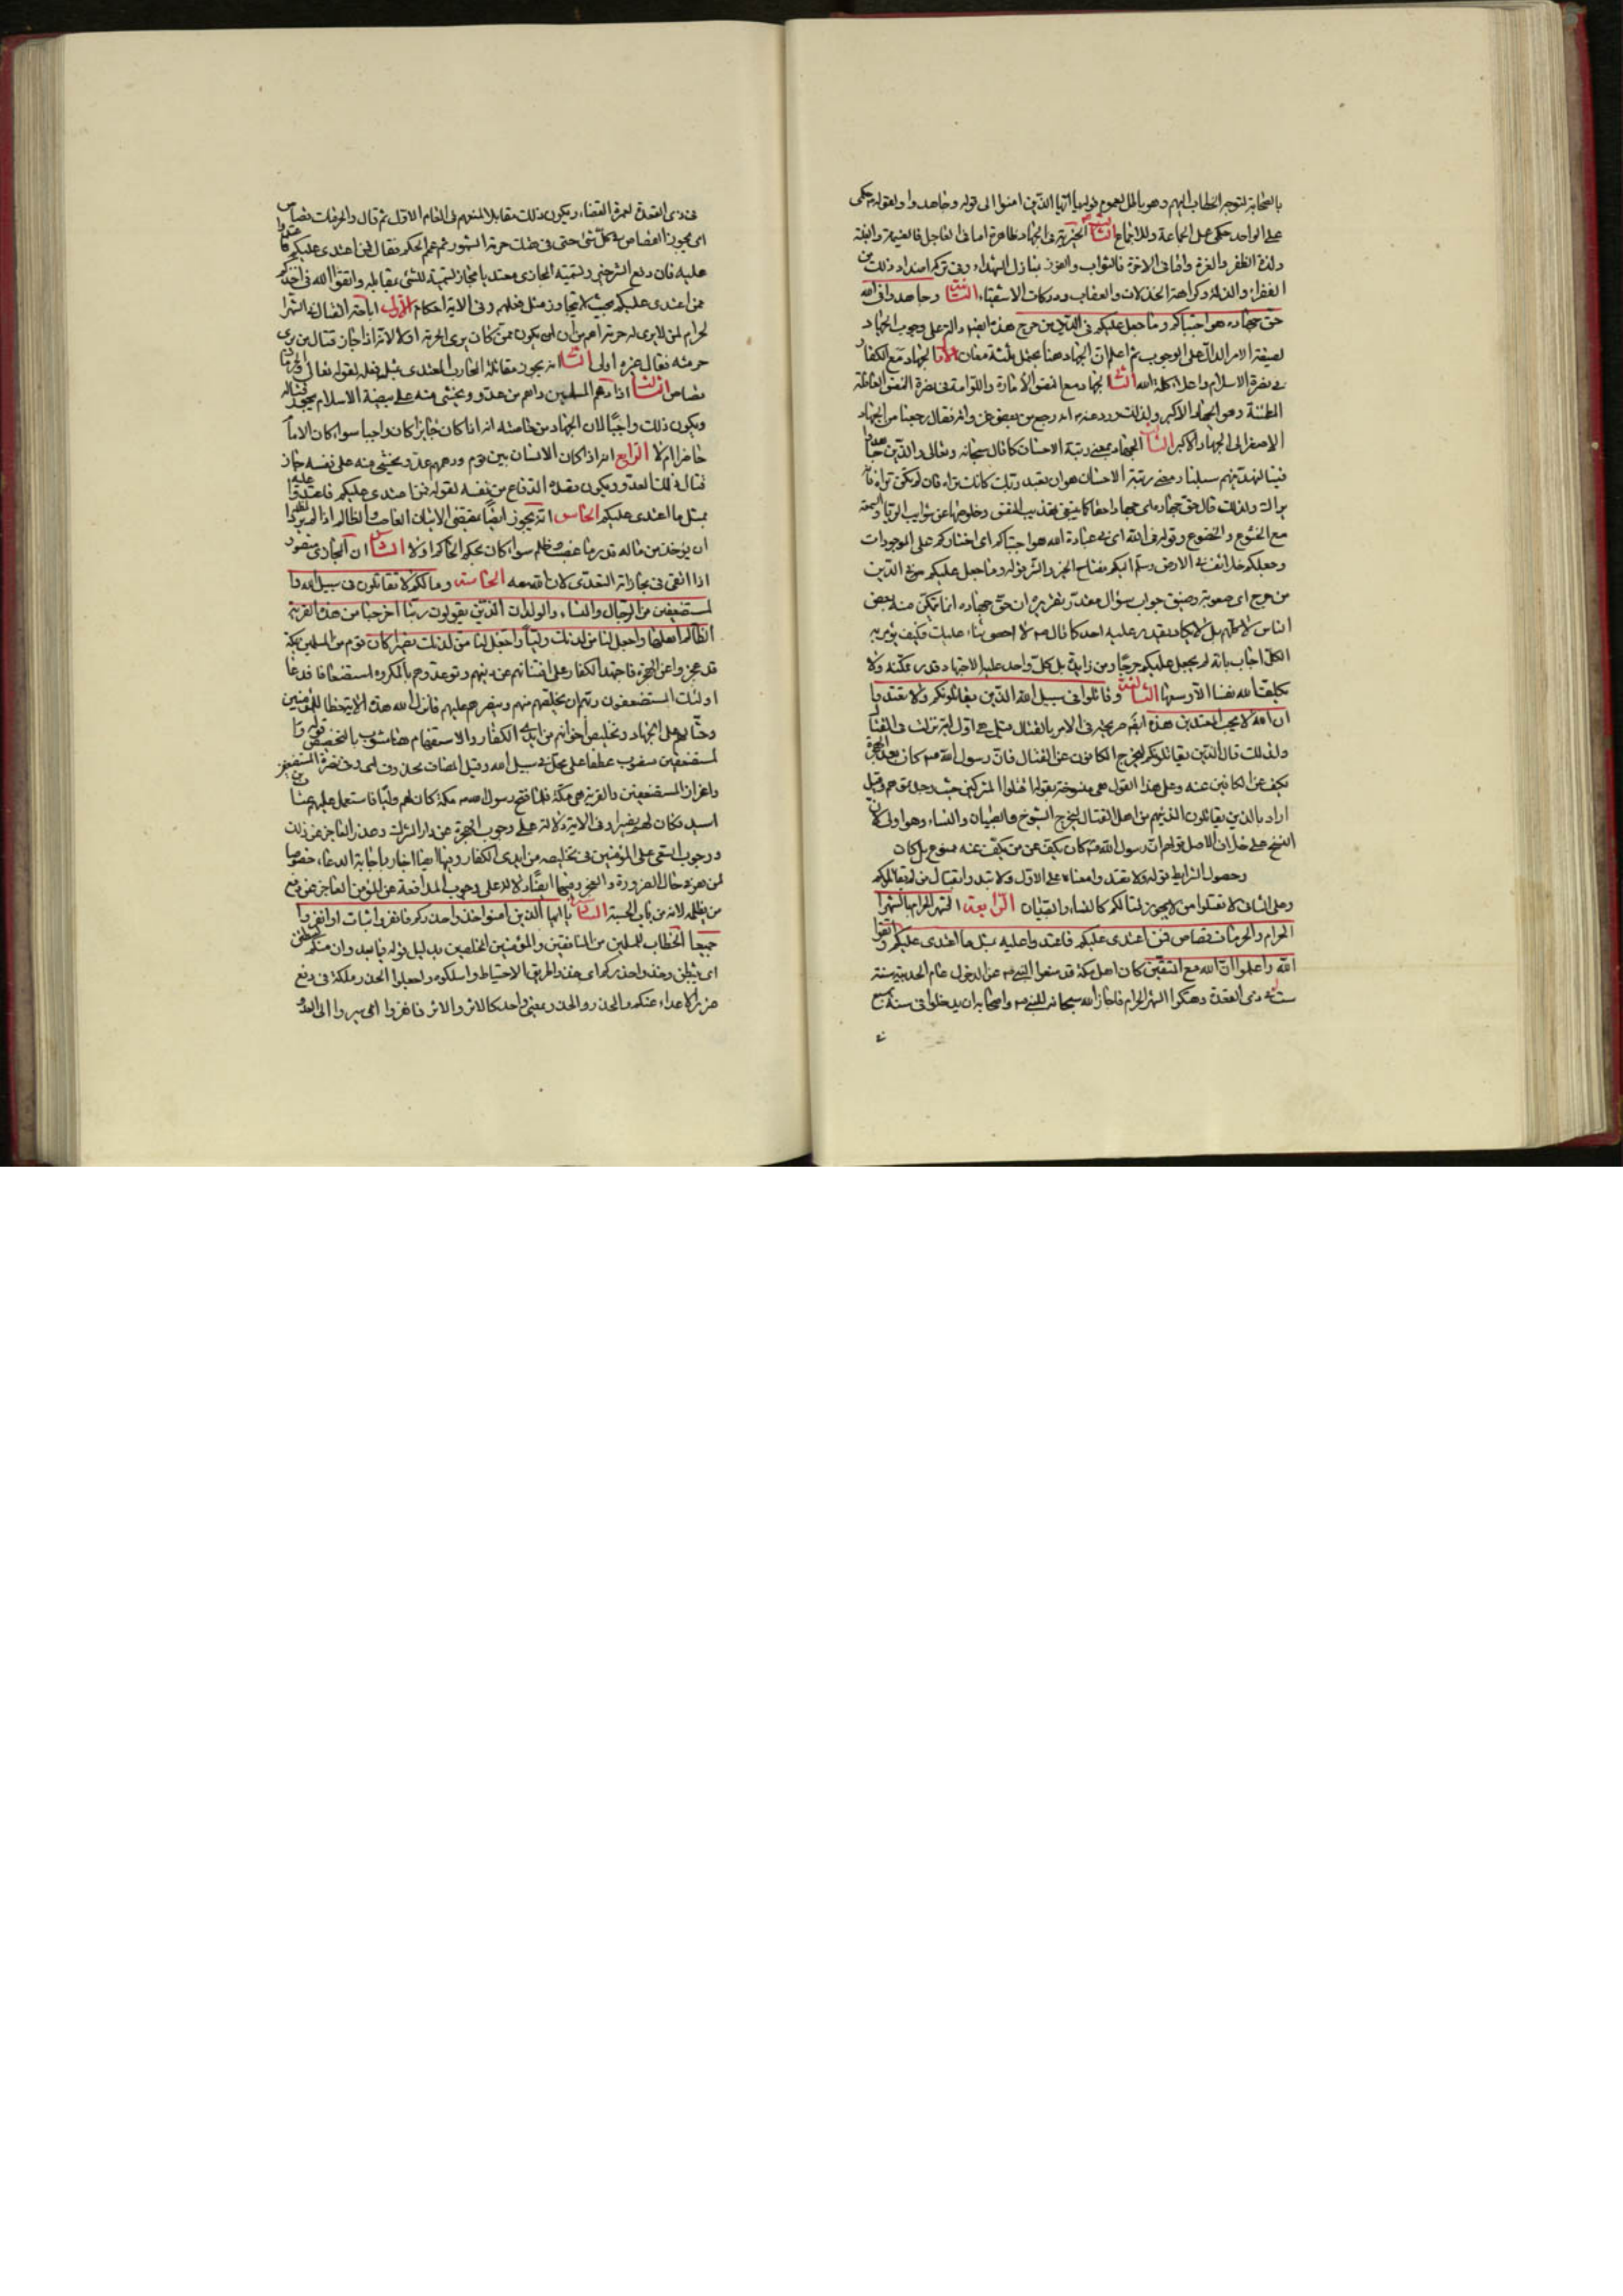 بالصحابة لتوجه الخطاب اليهم وهو باطل لعموم قوله يا ايها الذين امنوا الى قوله وجاهدوا ولقوله حكمى
على الواحد حكمى على الجماعة وللاجماع الثالث الخيرية في الجهاد ظاهرة اما في العاجل فالغنيمة والغلبة
ولذة الظفر والعزة واما في الاخرة فالثواب والفوز بمنازل الشهداء وفي تركه اضداد ذلك من
الفقر والذلة وكراهة الخذلان والعقاب ودركات الاشقياء الثانية وجاهدوا في الله
حق جهاده هو اجتباكم وما جعل عليكم في الدين من حرج هذه ايضا دالة على وجوب الجهاد
لصيغة الامر الدال على الوجوب ثم اعلم ان الجهاد هنا يحتمل ثلثة معان الاول الجهاد مع الكفار
في نصرة الاسلام واعلاء كلمة الله الثاني الجهاد مع النفس الامارة واللوامة في نصرة النفس العاقلة
المطمئنة وهو الجهاد الاكبر ولذلك ورد عنه انه رجع من بعض غزواته فقال رجعنا من الجهاد
الاصغر الى الجهاد الاكبر الثالث الجهاد بمعنى رتبة الاحسان كما قال سبحانه وتعالى والذين جاهدوا
فينا لنهدينهم سبلنا ومعنى رتبة الاحسان هو ان تعبد ربك كانك تراه فان لم تكن تراه فانه
يراك ولذلك قال حق جهاده اى جهادا حقا كما ينبغي بتهذيب النفس وخلوصها عن شوايب الريا والسمعة
مع الخشوع والخضوع وقوله في الله اى في عبادة الله هو اجتباكم اى اختاركم على الموجودات
وجعلكم خلائف في الارض وسلم اليكم مفتاح الخير والشر قوله وما جعل عليكم في الدين
من حرج اى صعوبة وضيق جواب سؤال مقدر تقريره ان حق جهاده انما يتمكن منه بعض
الناس لا كلهم بل لا يكاد يقدر عليه احد كما قال لا احصى ثناء عليك فكيف يؤمر به
الكل اجاب بانه لم يجعل عليكم حرجا بل كل واحد عليه الاجتهاد قدر مكنته ولا
يكلف الله نفسا الا وسعها الثالثة وقاتلوا في سبيل الله الذين يقاتلونكم ولا تعتدوا
ان الله لا يحب المعتدين هذه ايضا صريحة في الامر بالقتال قيل هى اول اية نزلت في القتال
ولذلك قال الذين يقاتلونكم ليخرج الكافون عن القتال فان رسول الله كان بعد الهجرة
يكف عن الكافين عنه وعلى هذا القول هى منسوخة بقوله اقتلوا المشركين حيث وجدتموهم وقيل
اراد بالذين يقاتلون الذينهم من اهل القتال ليخرج الشيوخ والصبيان والنساء وهو اولى لان
النسخ على خلاف الاصل قولهم ان رسول الله كان يكف عن من يكف عنه ممنوع بل كان
وحصول الشرايط قوله ولا تعتدوا معناه على الاول ولا تبدوا بقتال من لم يقاتلوكم
وعلى الثاني لا تقتلوا من لا يجوز لكم كالنساء والصبيان الرابعة الشهر الحرام بالشهر
الحرام والحرمات قصاص فمن اعتدى عليكم فاعتدوا عليه بمثل ما اعتدى عليكم واتقوا
الله واعلموا ان الله مع المتقين كان اهل مكة قد منعوا النبي عن الدخول عام الحديبية سنة
ست في ذي القعدة وهتكوا الشهر الحرام فاجاز الله سبحانه للنبي واصحابه ان يدخلوا في سنة سبع
في ذي القعدة لعمرة القضاء ويكون ذلك مقابلا لمنعهم في العام الاول ثم قال والحرمات قصاص
اى يجوز القصاص في كل شئ حتى في هتك حرمة الشهور ثم عمم الحكم فقال فمن اعتدى عليكم فاعتدوا
عليه فان دفع الشر خير وتسمية المجازى معتديا مجاز تسمية للشئ بمقابله واتقوا الله في اخذكم
ممن اعتدى عليكم بحيث لا يتجاوز مثل فعله وفي الاية احكام الاول اباحة القتال في الشهر
الحرام لمن لا يرى له حرمة اعم من ان يكون ممن كان يرى الحرمة او لا لانه اذا جاز قتال من يرى
حرمته فقتال غيره اولى الثاني انه يجوز مقاتلة المحارب المعتدى بمثل فعله لقوله تعالى والحرمات
قصاص الثالث اذا دهم المسلمين داهم من عدو ويخشى منه على بيضة الاسلام يجوز قتاله
ويكون ذلك واجبا لان الجهاد من خاصته انه اذا كان جائزا كان واجبا سواء كان الامام
حاضرا ام لا الرابع انه اذا كان الانسان بين قوم ودهمهم عدو يخشى منه على نفسه جاز
قتال ذلك العدو ويكون بقصد الدفاع عن نفسه لقوله فمن اعتدى عليكم فاعتدوا عليه
بمثل ما اعتدى عليكم الخامس انه يجوز ايضا بمقتضى الايتان الغاصب والظالم اذا لم يرد
ان يؤخذ من ماله قدر ما غصب وظلم سواء كان بحكم الحاكم او لا السادس ان المجازى منصور
اذا اتقى في مجازاته التعدى لان الله معه الخامسة وما لكم لا تقاتلون في سبيل الله وا
لمستضعفين من الرجال والنساء والولدان الذين يقولون ربنا اخرجنا من هذه القرية
الظالم اهلها واجعل لنا من لدنك وليا واجعل لنا من لدنك نصيرا كان قوم من المسلمين بمكة
قد عجزوا عن الهجرة فاجتهد الكفار على افتتانهم عن دينهم وتوعدوهم بالمكروه استضعافا فدعا
اولئك المستضعفون ربهم ان يخلصهم منهم وينصرهم عليهم فانزل الله هذه الاية حظا للمؤمنين
وحثا لهم على الجهاد وتخليص اخوانهم من ايدى الكفار والاستفهام هنا مشوب بالتخصيص قوله وا
لمستضعفين منصوب عطفا على محل في سبيل الله وقيل المضاف محذوف اى وفي نصرة المستضعفين
واعزاز المستضعفين والقرية هى مكة فلما فتح رسول الله مكة كان لهم وليا فاستعمل عليهم عتاب بن
اسيد فكان لهم نصيرا وفي الاية دلالة على وجوب الهجرة عن دار الشرك وعذر العاجز عن ذلك
ووجوب السعى على المؤمنين في تخليصه من ايدى الكفار وفيها ايضا اخبار باجابة الدعاء خصوصا
لمن هو في حال الضرورة والعجز وفيها ايضا دلالة على وجوب المدافعة عن المؤمن العاجز عن دفع
من يظلمه لانه من باب الحسبة السادسة يا ايها الذين امنوا خذوا حذركم فانفروا ثبات او انفروا
جميعا الخطاب للمسلمين من المنافقين والمؤمنين المخلصين بدليل قوله فيما بعد وان منكم لمن ليبطئن
اى يثبطن وخذوا حذركم اى خذوا طريق الاحتياط واسلكوه واجعلوا الحذر ملكة في دفع
ضرر الاعداء عنكم والحذر والحذر بمعنى واحد كالاثر والاثر فانفروا اى سيروا الى العدو